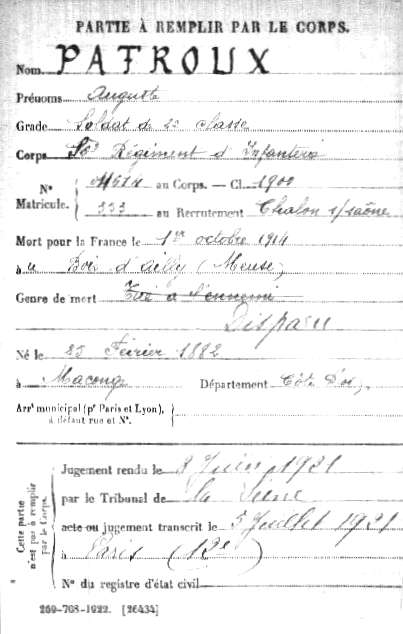 PARTIE À REMPLIR PAR LE CORPS.
Nom PATROUX
Prénoms Auguste
Grade Soldat de 2e classe
Corps Régiment d'Infanterie
Nº Matricule. { 11514 au Corps. — Cl. 1900
333 au Recrutement Chalon s/saône
Mort pour la France le 1er octobre 1914
à u Bois d'ailly (Meuse)
Genre de mort Tué à l'ennemi
Disparu
Né le 25 Février 1882
à Maconge Département Côte d'or
Arrt municipal (pr Paris et Lyon), à défaut rue et Nº. {
Cette partie n'est pas à remplir par le Corps.
Jugement rendu le 3 Juin 1921
par le Tribunal de la Seine
acte ou jugement transcrit le 5 Juillet 1921
à Paris (13e)
Nº du registre d'état civil
269-708-1922. [26434]